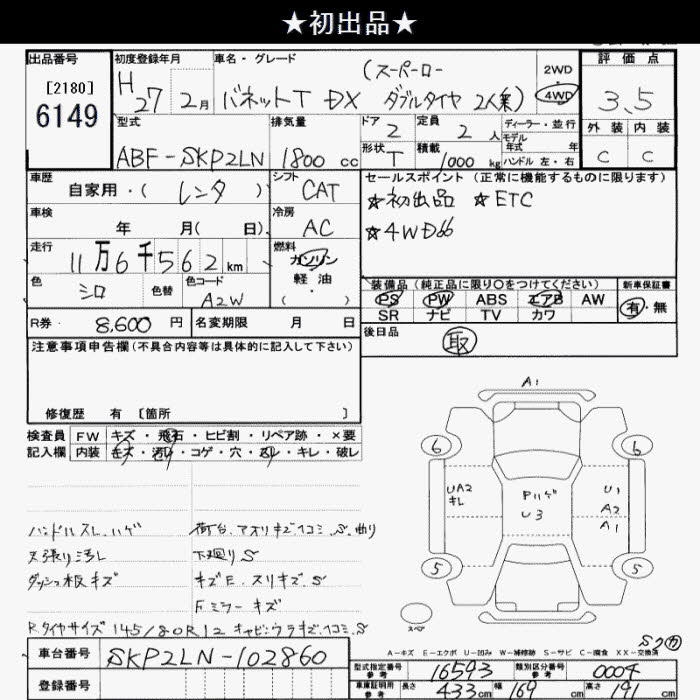 ★初出品★
出品番号
[2180]
6149
初度登録年月
H 27年 2月
車名・グレード
(スーパーロー
バネットT DX ダブルタイヤ 2人乗)
2WD
4WD
評価点
3.5
外装 内装
C C
型式
ABF-SKP2LN
排気量
1800 cc
ドア 2
形状 T
定員 2 人
積載 1000 kg
ディーラー・並行
モデル
年式 年
ハンドル 左・右
車歴
自家用・( レンタ )
シフト
CAT
車検
年 月( 日)
冷房
AC
走行
11万6千562 km
燃料
ガソリン
軽油
( ・ )
色
シロ
色替
色コード
A2W
R券 8,600 円
名変期限 月 日
セールスポイント (正常に機能するものに限ります)
★初出品 ★ETC
★4WD
装備品 (純正品に限り○をつけてください)
PS PW ABS エアB AW
SR ナビ TV カワ
新車保証書
有・無
後日品
取
注意事項申告欄 (不具合内容等は具体的に記入して下さい)
修復歴 有 [箇所 ]
検査員
記入欄
FW キズ・飛石・ヒビ割・リペア跡・×要
内装 キズ・汚れ・コゲ・穴・スレ・キレ・破レ
ハンドルスレ、ハゲ
天張り汚レ
ダッシュ板キズ
荷台、アオリキズヘコミ、S、曲り
下廻りS
キズE、スリキズ、S
Fミラーキズ
RタイヤサイズH 145/80R12 キャビンウラキズ、ヘコミ、S
A1
6
6
UA2
キレ
Pハゲ
U3
U1
A2
A1
5
5
スペア
A-キズ E-エクボ U-凹み W-補修跡 S-サビ C-腐食 XX-交換済
車台番号
SKP2LN-102860
登録番号
型式指定番号
参考
16593
類別区分番号
参考
0004
車庫証明用
参考
長さ 433 cm
幅 169 cm
高さ 191 cm